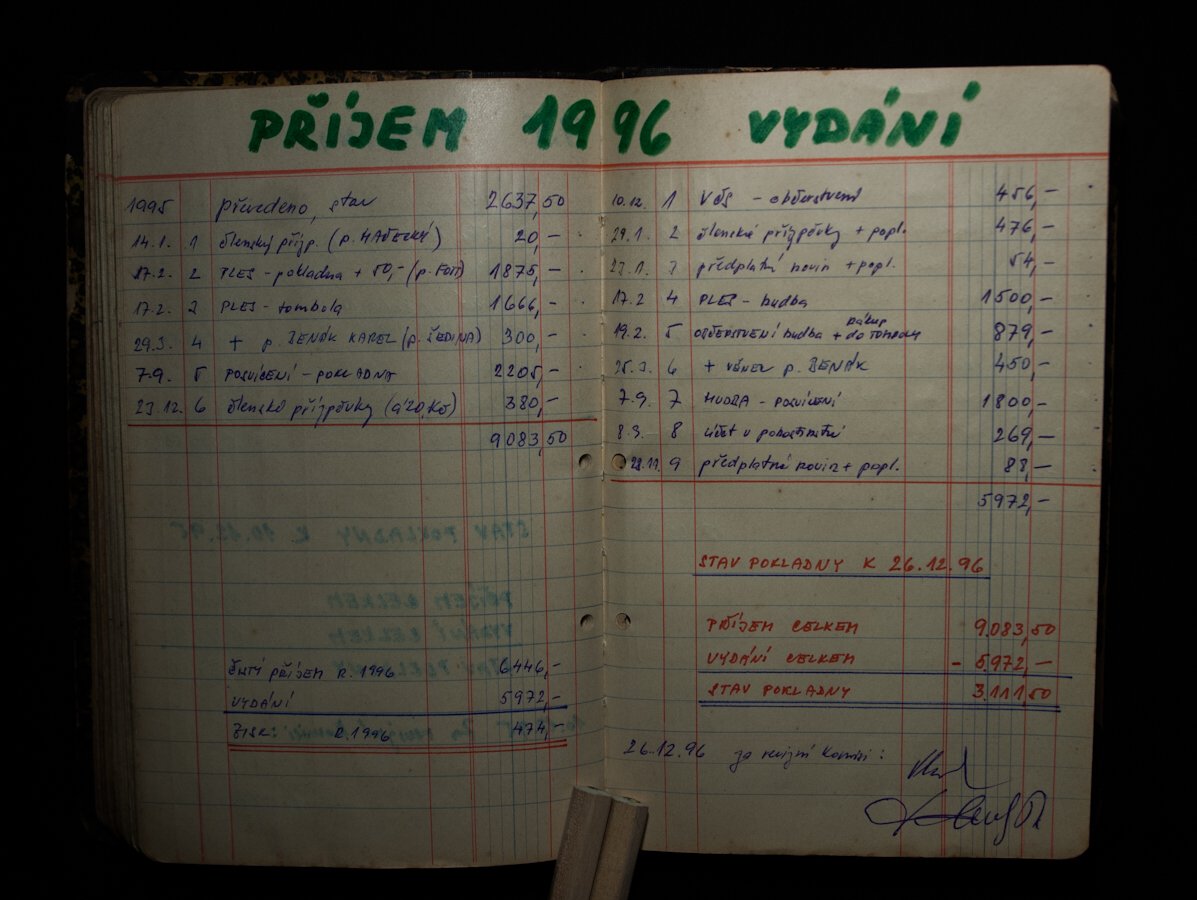 PŘÍJEM 1996 VYDÁNÍ
1995 převedeno, stav 2637,50
14.1. 1 členský přísp. (p. MAČECKÝ) 20,-
17.2. 2 PLES - pokladna + 50,- (p. Fořt) 1875,-
17.2. 3 PLES - tombola 1666,-
29.3. 4 + p. ZENÁK KAREL (p. ŠEDINA) 300,-
7.9. 5 POSVÍCENÍ - POKLADNA 2205,-
23.12. 6 členské příspěvky (á 20,Kč) 380,-
9083,50
ČISTÝ PŘÍJEM R. 1996 6446,-
VYDÁNÍ 5972,-
ZISK: R. 1996 474,-
10.12. 1 VČS - občerstvení 456,-
29.1. 2 členské příspěvky + popl. 476,-
23.1. 3 předplatné novin + popl. 54,-
17.2 4 PLES - hudba 1500,-
19.2. 5 OBČERSTVENÍ hudba + nákup do TOMBOLY 879,-
25.3. 6 + věnec p. ZENÁK 450,-
7.9. 7 HUDBA - POSVÍCENÍ 1800,-
8.3. 8 účet v pohostinství 269,-
28.11. 9 předplatné novin + popl. 88,-
5972,-
STAV POKLADNY K 26.12.96
PŘÍJEM CELKEM 9.083,50
VYDÁNÍ CELKEM - 5.972,-
STAV POKLADNY 3.111,50
26.12.96 za revizní komisi: